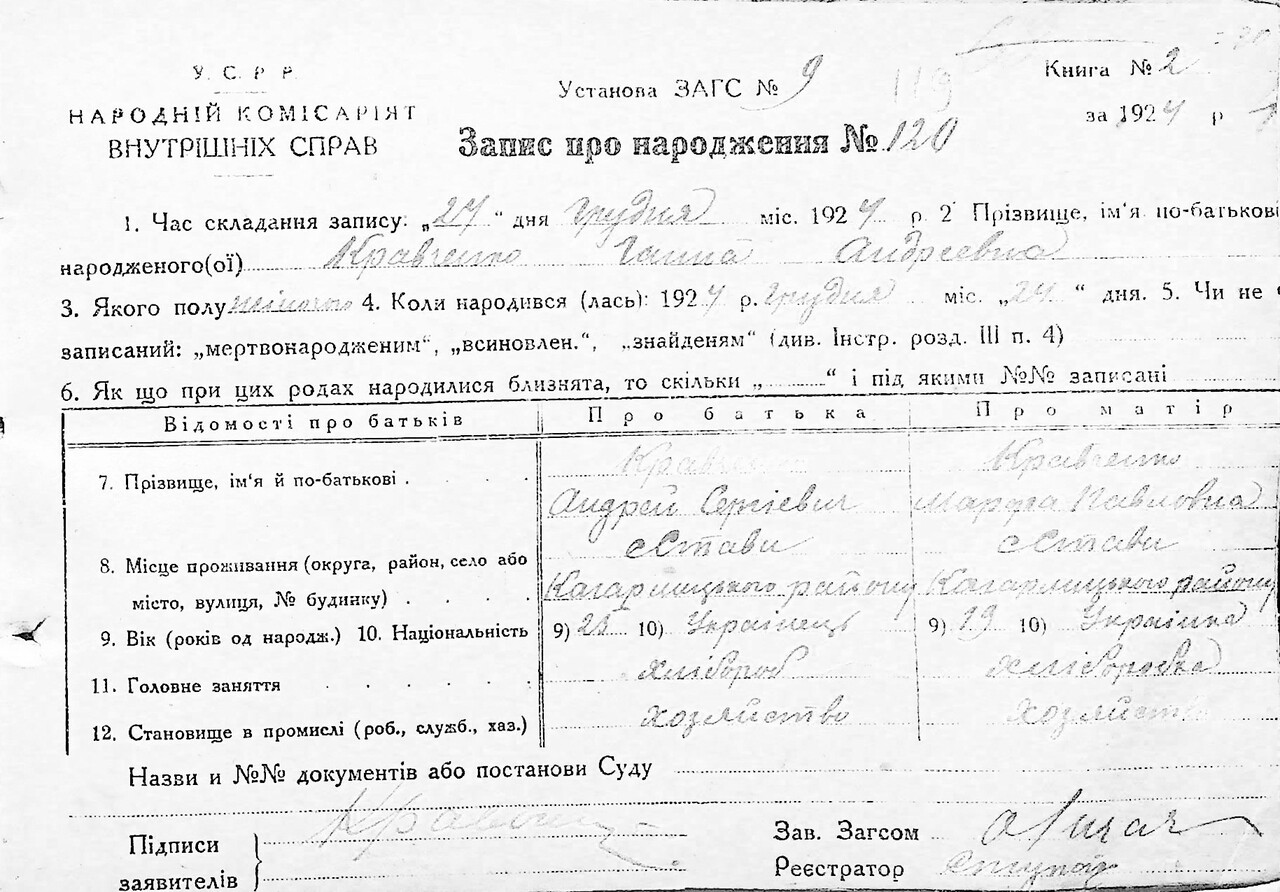 У. С. Р. Р.
НАРОДНІЙ КОМІСАРІЯТ
ВНУТРІШНІХ СПРАВ
Установа ЗАГС № 9
119
Книга № 2
за 1924 р
Запис про народження № 120
1. Час складання запису: „24“ дня Грудня міс. 1924 р. 2 Прізвище, ім'я по-батькові
народженого(ої) Кравченко Ганна Андреевна
3. Якого полу жіночого 4. Коли народився (лась): 1924 р. Грудня міс. „24“ дня. 5. Чи не
записаний: „мертвонародженим“, „всиновлен.“, „знайденям“ (див. Інстр. розд. III п. 4)
6. Як що при цих родах народилися близнята, то скільки „ “ і під якими №№ записані
Відомості про батьків Про батька Про матір
7. Прізвище, ім'я й по-батькові Кравченко Кравченко
Андрей Сергієвич Марфа Павловна
8. Місце проживання (округа, район, село або с Стави с Стави
місто, вулиця, № будинку) Кагарлицького району Кагарлицького району
9. Вік (років од народж.) 10. Національність 9) 25 10) Українець 9) 19 10) Українка
11. Головне заняття хлібороб хлібороб
12. Становище в промислі (роб., служб., хаз.) хозяйство хозяйство
Назви и №№ документів або постанови Суду
Підписи
заявителів
Кравченко
Зав. Загсом
Реєстратор